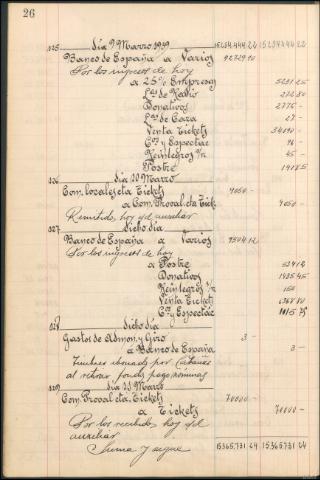 26
525 día 9 Marzo 1939 15254.444 22 15254.444 22
Banco de España a Varios 92729 10
Por los ingresos de hoy
a 25% Empresas
Lcs de Radio
Donativos 2775 -
Lcs de Caza 27 -
Venta Tickets
Cts y Espectac 96 -
Reintegros 45 -
Postre
526 día 10 Marzo
Com. locales cta Tickets 4050 -
a Com. Proval. cta Tick 4050 -
Remitido, hoy s/d auxiliar
527 dicho día
Banco de España a Varios 9504 12
Por los ingresos de hoy
a Postre
Donativos
Reintegros 150
Venta Tickets
Cts y Espectac
528 dicho día
Gastos de Admon. y Giro 3 -
a Banco de España 3 -
Timbres abonados por
al retirar fondos pago nóminas
529 día 11 Marzo
Com. Proval cta. Tickets 70000 -
a Tickets 70000 -
Por los recibidos, hoy s/d
auxiliar
Suma y sigue 15365.731 24 15365.731 24